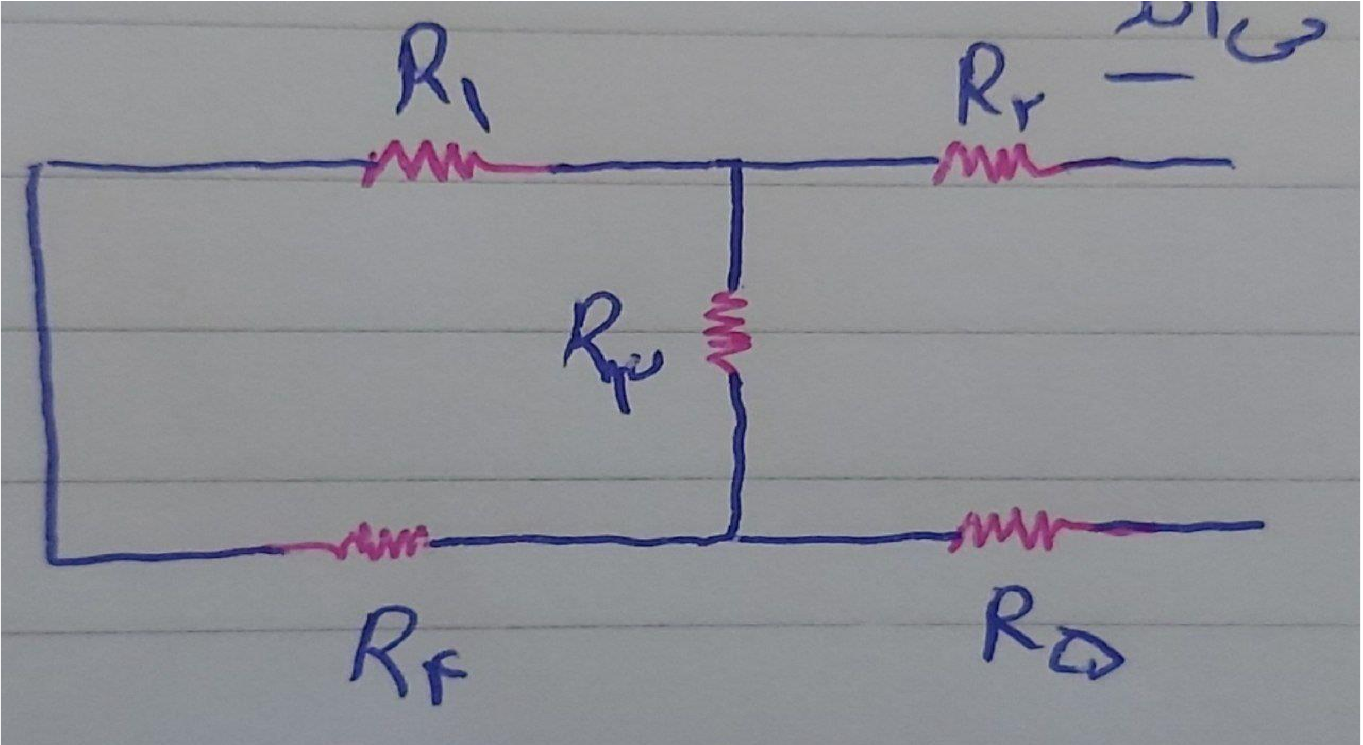 R۱
R۲
R۳
R۴
R۵